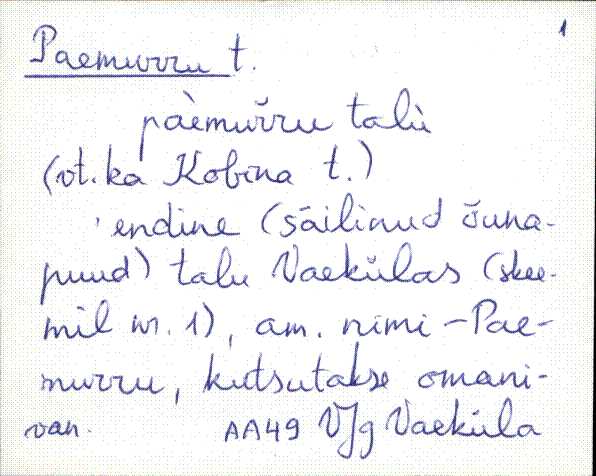 1
Paemurru t.
pàemur̆ru talù
(vt. ka Kobina t.)
endine (säilinud õuna-
puud) talu Vaeküla​s (skee-
mil nr. 1), am. nimi - Pae-
murru, kutsutakse omani-
van. AA49 VJg Vaeküla